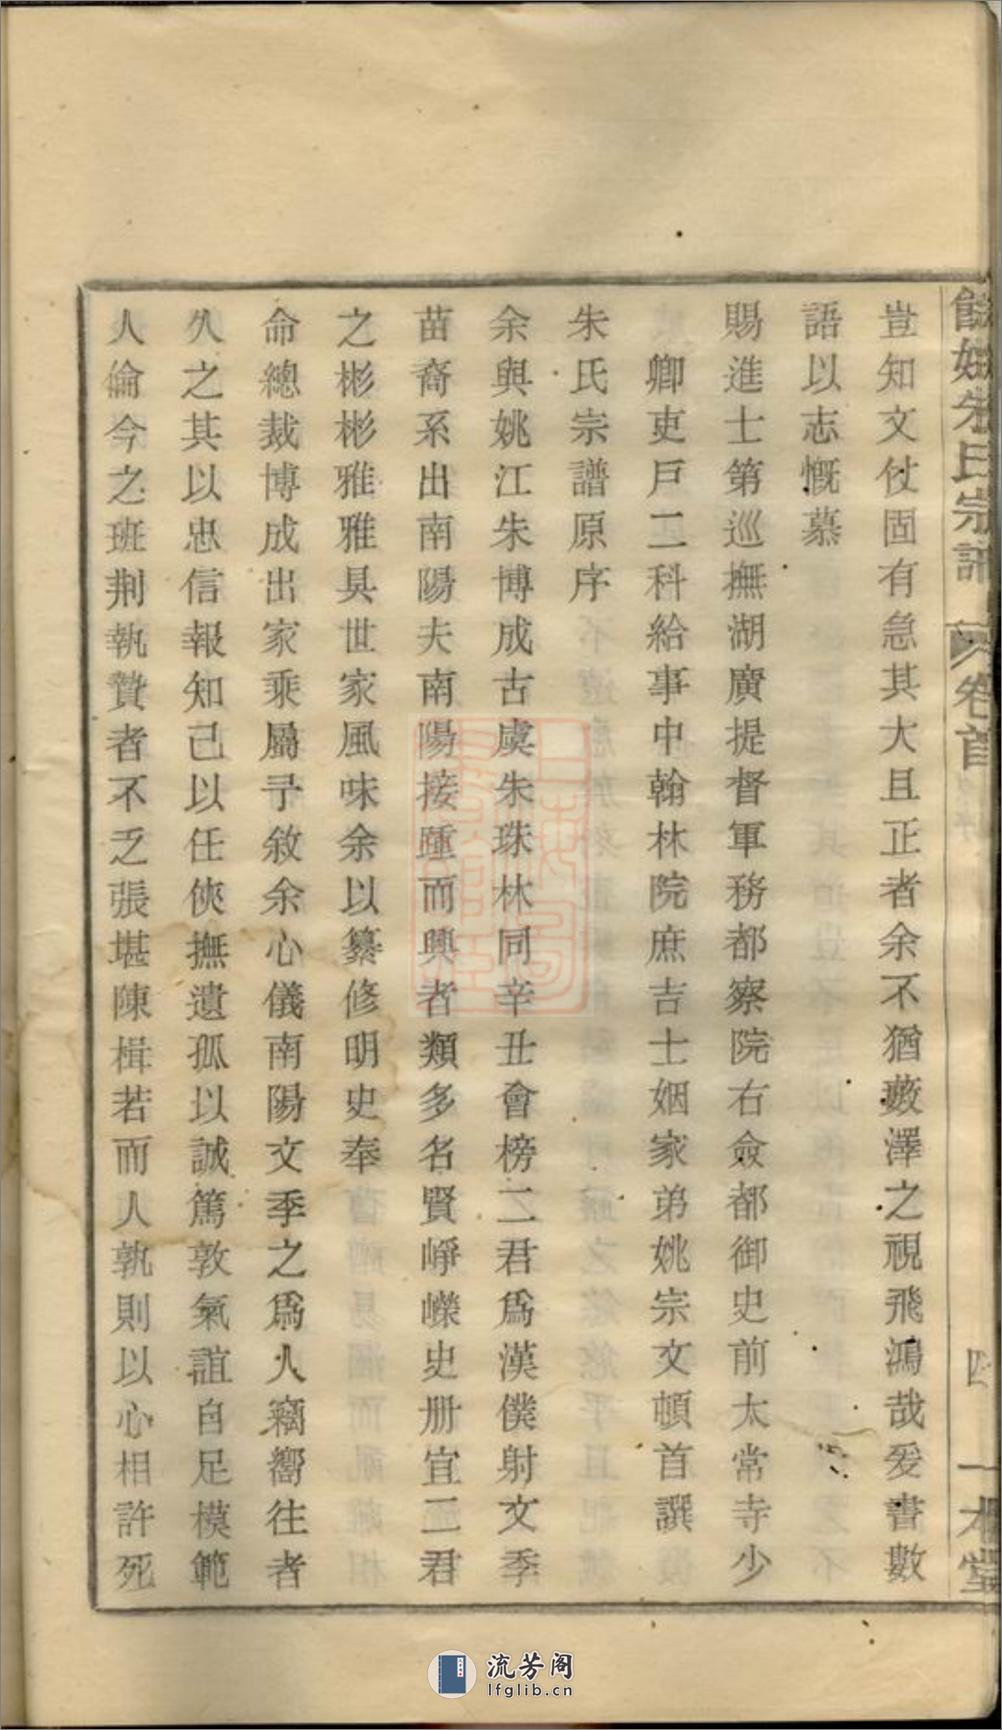 餘姚朱氏宗譜 卷首 四 一本堂
豈知文仗固有急其大且正者余不猶藪澤之視飛鴻哉爰書數
語以志慨慕
賜進士第巡撫湖廣提督軍務都察院右僉都御史前太常寺少
卿吏戶二科給事中翰林院庶吉士姻家弟姚宗文頓首譔
朱氏宗譜原序
余與姚江朱博成古虞朱珠林同辛丑會榜二君爲漢僕射文季
苗裔系出南陽夫南陽接踵而興者類多名賢崢嶸史册宜二君
之彬彬雅雅具世家風味余以纂修明史奉
命總裁博成出家乘屬予敘余心儀南陽文季之爲人竊嚮往者
久之其以忠信報知己以任俠撫遺孤以誠篤敦氣誼自足模範
人倫今之班荆執贄者不乏張堪陳楫若而人孰則以心相許死
流芳阁
lfglib.cn